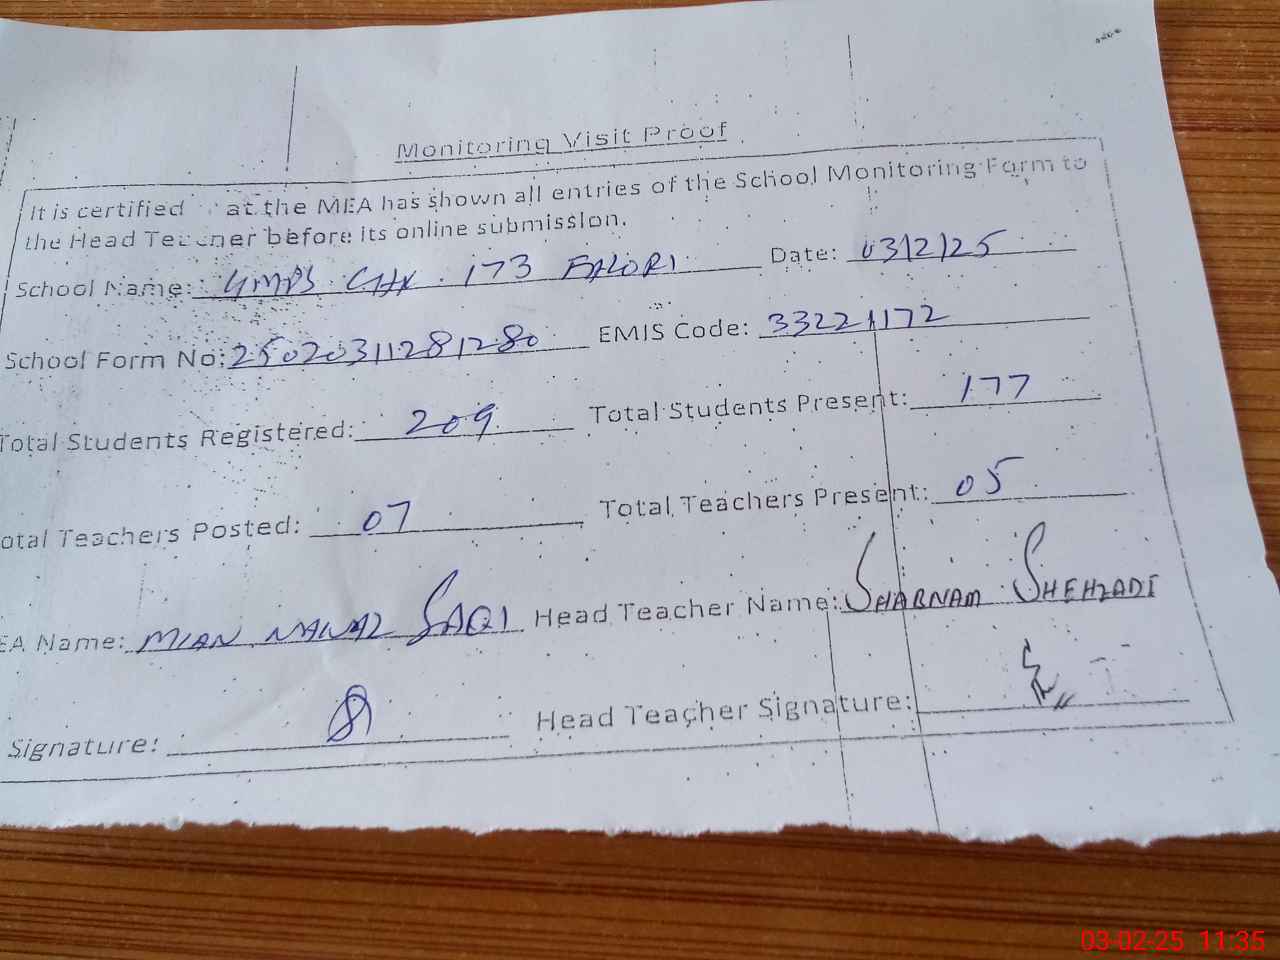 Monitoring Visit Proof
It is certified at the MEA has shown all entries of the School Monitoring Form to
the Head Teacher before its online submission.
School Name: GMPS CHK. 173 Date: 03/2/25
School Form No: 25020311281280 EMIS Code: 33221172
Total Students Registered: 209 Total Students Present: 177
otal Teachers Posted: 07 Total Teachers Present: 05
EA Name: MIAN NAWAZ SAQI Head Teacher Name: SHABNAM SHEHZADI
Signature: Head Teacher Signature:
03-02-25 11:35